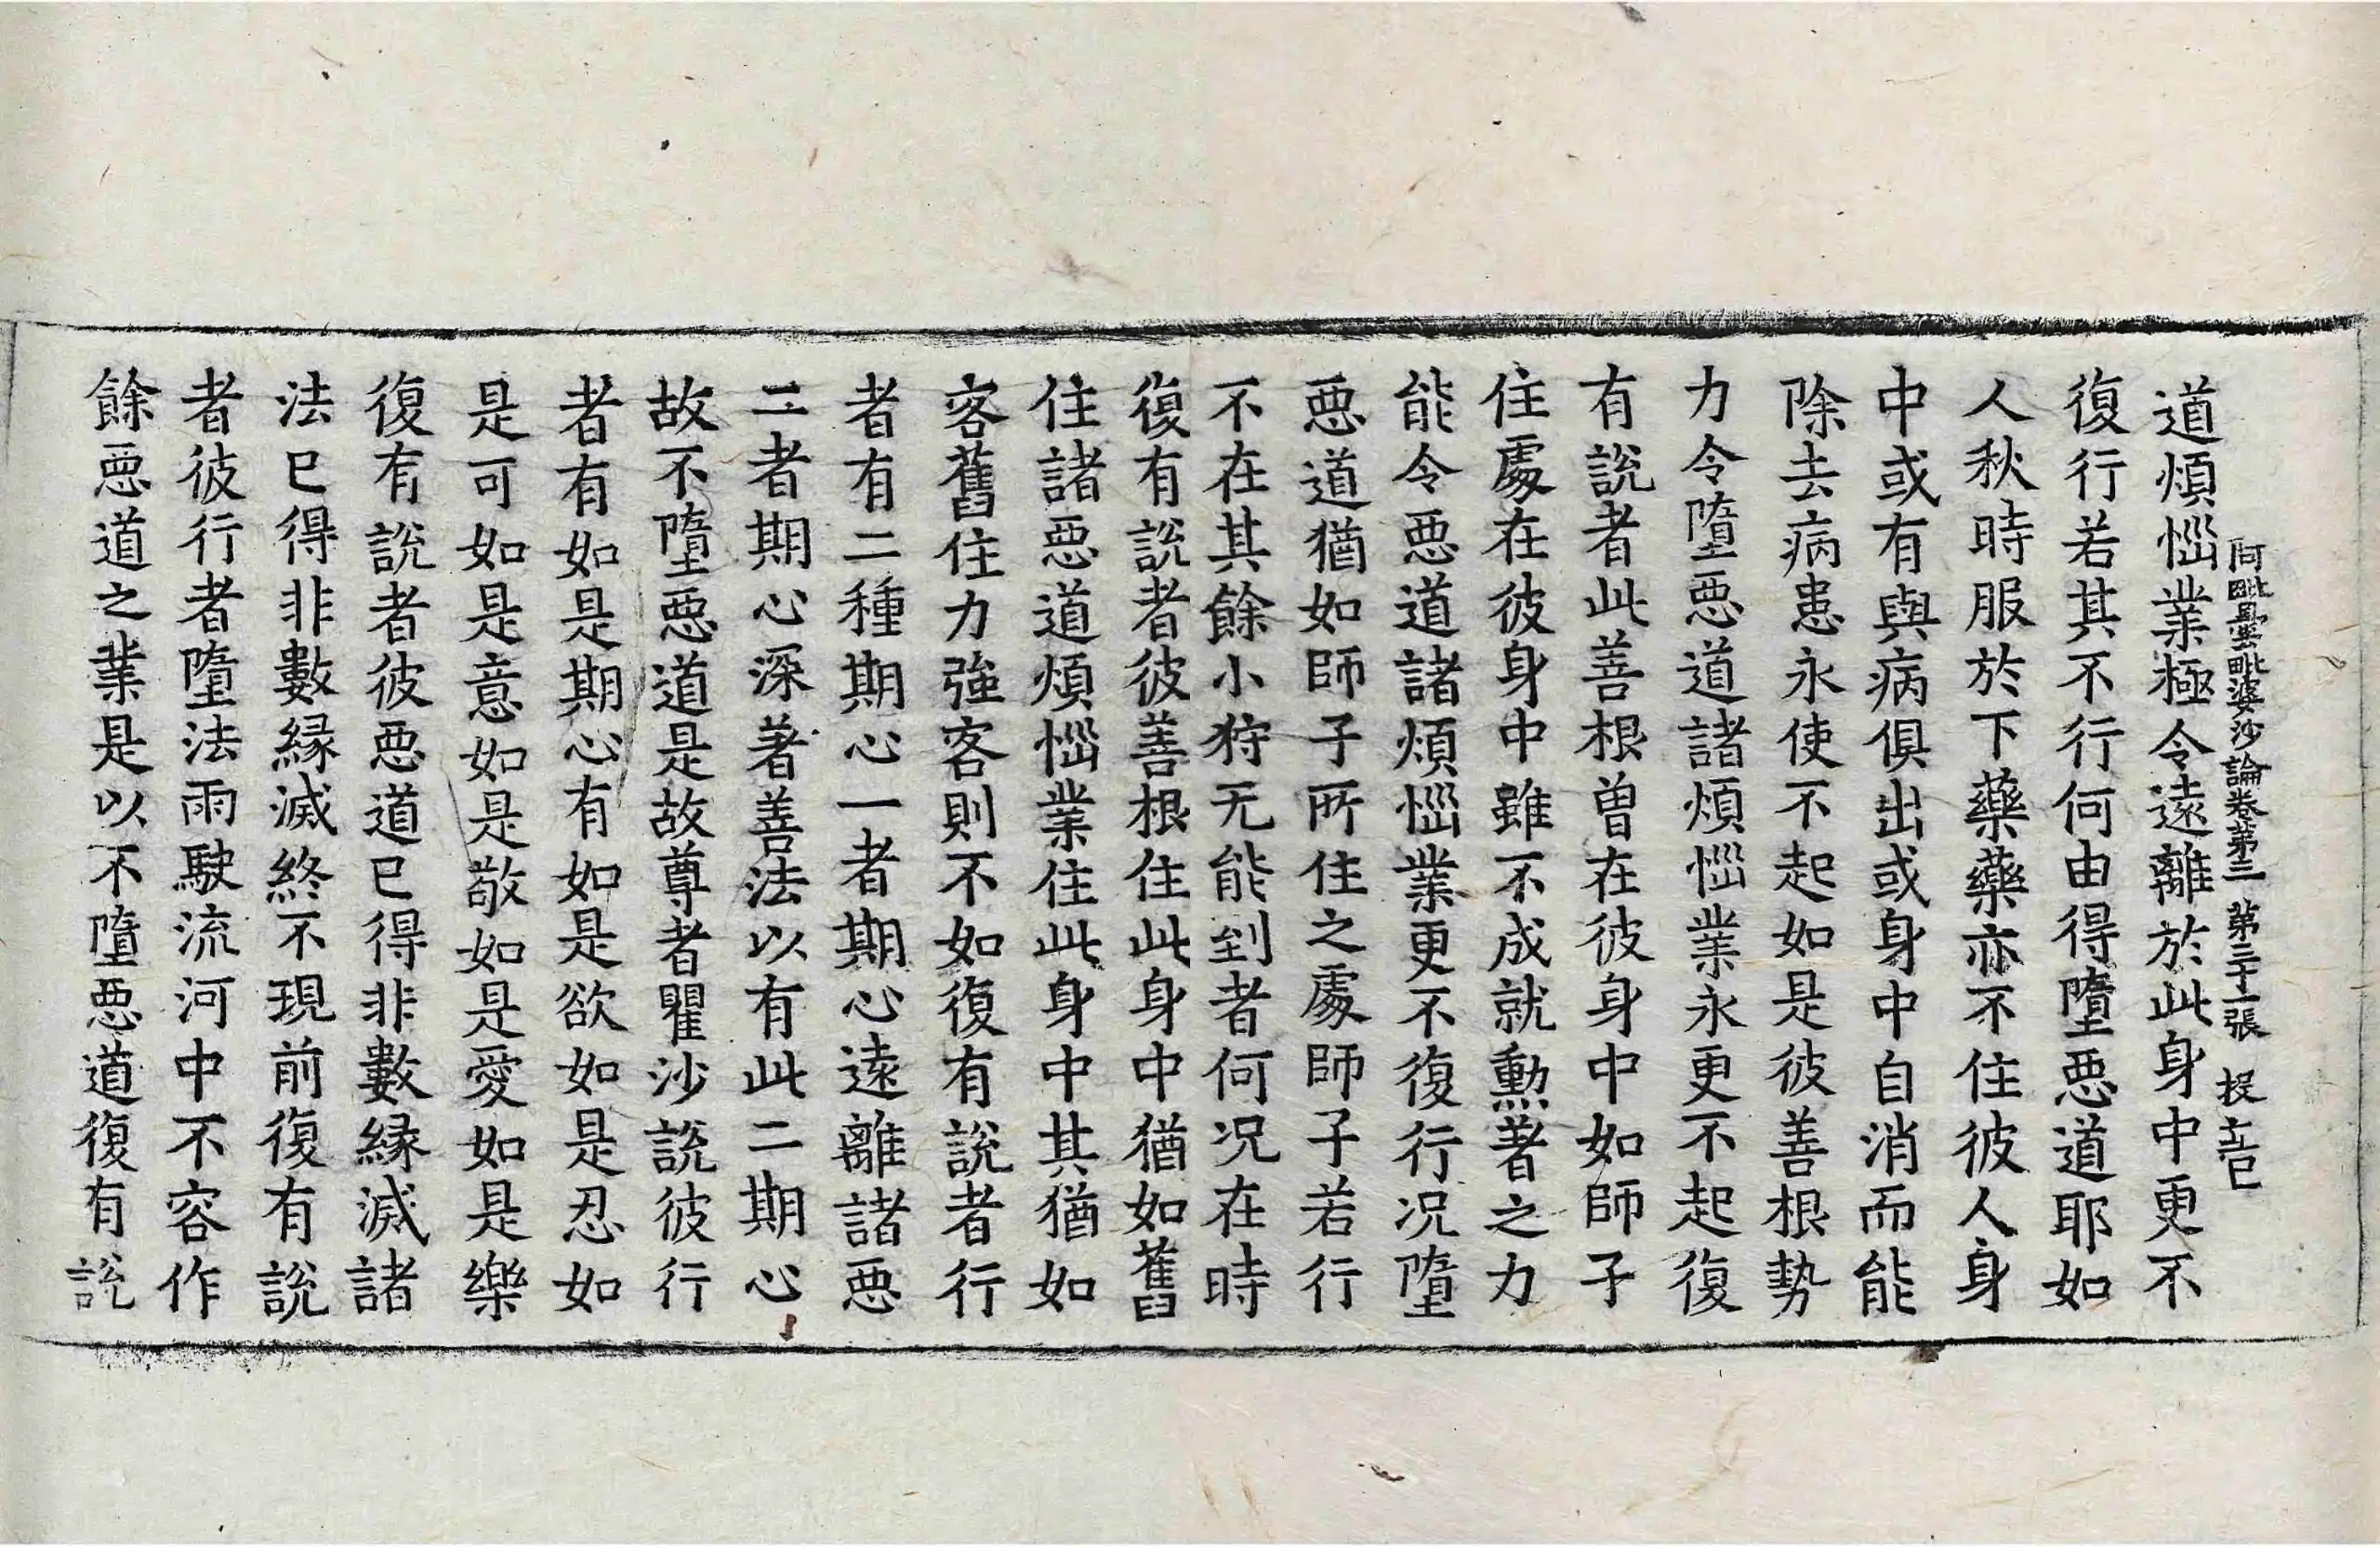 阿毗曇毗婆沙論卷第三 第三十一張
道煩惱業極令遠離於此身中更不
復行若其不行何由得墮惡道耶如
人秋時服於下藥藥亦不住彼人身
中或有與病俱出或身中自消而能
除去病患永使不起如是彼善根勢
力令墮惡道諸煩惱業永更不起復
有說者此善根曾在彼身中如師子
住處在彼身中雖不成就勳著之力
能令惡道諸煩惱業更不復行况墮
惡道猶如師子所住之處師子若行
不在其餘小狩无能到者何况在時
復有說者彼善根住此身中猶如舊
住諸惡道煩惱業住此身中其猶如
客舊住力強客則不如復有說者行
者有二種期心一者期心遠離諸惡
二者期心深著善法以有此二期心
故不墮惡道是故尊者瞿沙說彼行
者有如是期心有如是欲如是忍如
是可如是意如是敬如是愛如是樂
復有說者彼惡道已得非數緣滅諸
法已得非數緣滅終不現前復有說
者彼行者墮法雨駛流河中不容作
餘惡道之業是以不墮惡道復有說